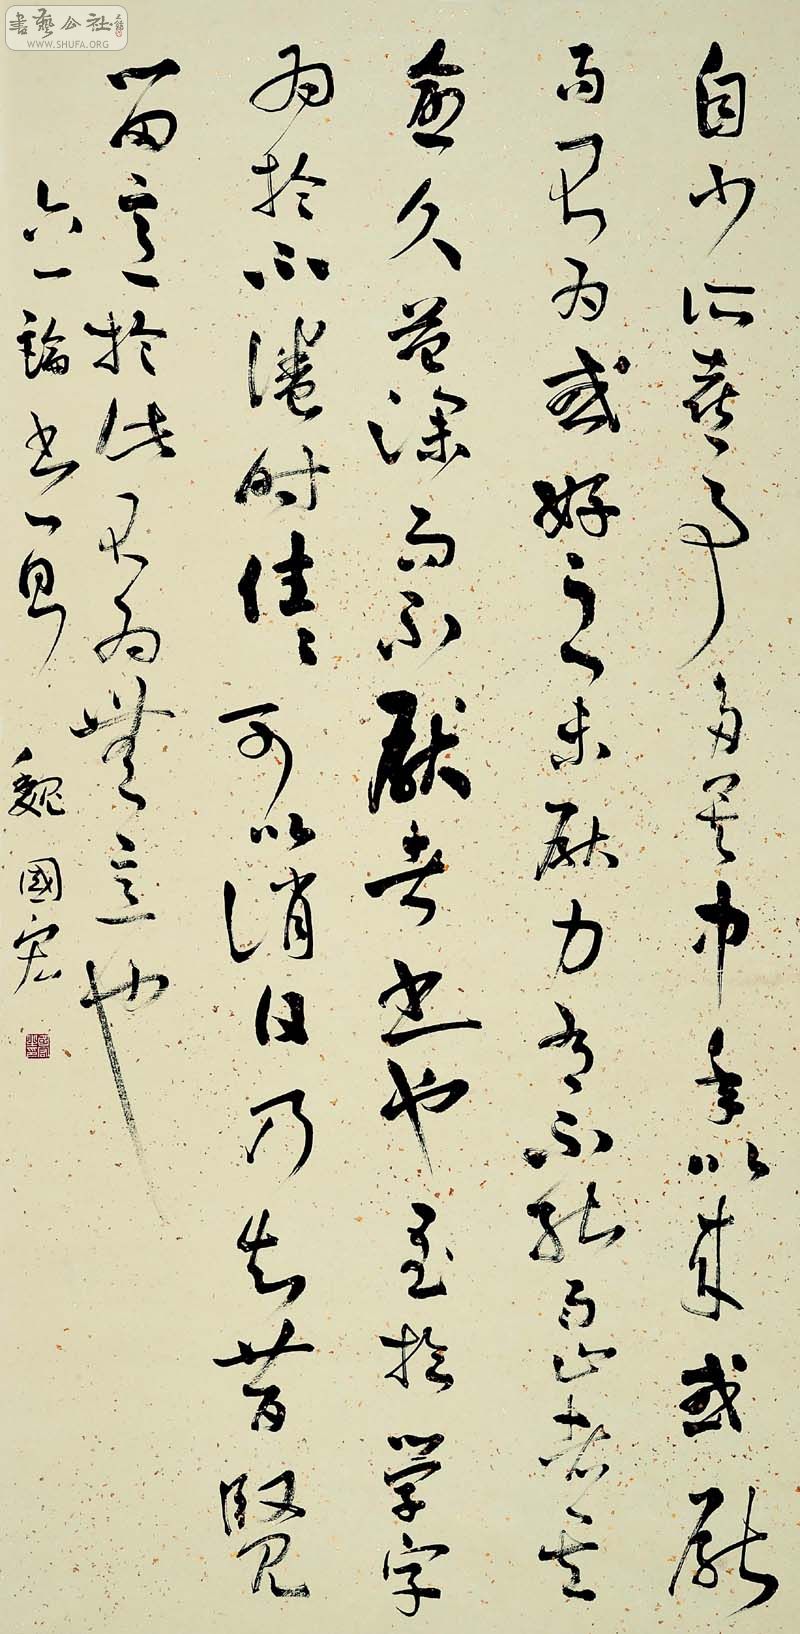 書藝公社
WWW.SHUFA.ORG
自少所喜事多矣中年以來或厭
而不為或好之未厭力有不能而止者其
愈久益深而不厭者書也至於學字
為於不倦時往往可以消日乃知昔賢
留意於此不為無意也
六一論書一則 魏國宏